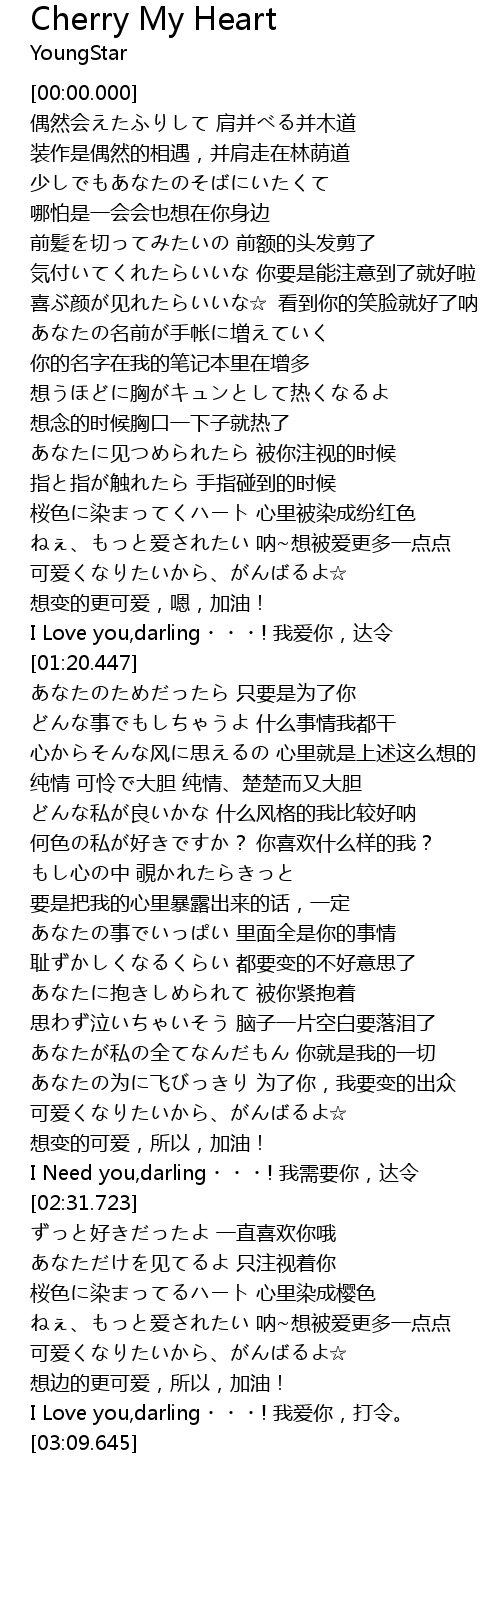 Cherry My Heart
YoungStar
[00:00.000]
偶然会えたふりして 肩并べる并木道
装作是偶然的相遇，并肩走在林荫道
少しでもあなたのそばにいたくて
哪怕是一会会也想在你身边
前髪を切ってみたいの 前额的头发剪了
気付いてくれたらいいな 你要是能注意到了就好啦
喜ぶ颜が见れたらいいな☆ 看到你的笑脸就好了呐
あなたの名前が手帐に増えていく
你的名字在我的笔记本里在增多
想うほどに胸がキュンとして热くなるよ
想念的时候胸口一下子就热了
あなたに见つめられたら 被你注视的时候
指と指が触れたら 手指碰到的时候
桜色に染まってくハート 心里被染成纷红色
ねぇ、もっと爱されたい 呐~想被爱更多一点点
可爱くなりたいから、がんばるよ☆
想变的更可爱，嗯，加油！
I Love you,darling・・・! 我爱你，达令
[01:20.447]
あなたのためだったら 只要是为了你
どんな事でもしちゃうよ 什么事情我都干
心からそんな风に思えるの 心里就是上述这么想的
纯情 可怜で大胆 纯情、楚楚而又大胆
どんな私が良いかな 什么风格的我比较好呐
何色の私が好きですか？ 你喜欢什么样的我？
もし心の中 覗かれたらきっと
要是把我的心里暴露出来的话，一定
あなたの事でいっぱい 里面全是你的事情
耻ずかしくなるくらい 都要变的不好意思了
あなたに抱きしめられて 被你紧抱着
思わず泣いちゃいそう 脑子一片空白要落泪了
あなたが私の全てなんだもん 你就是我的一切
あなたの为に飞びっきり 为了你，我要变的出众
可爱くなりたいから、がんばるよ☆
想变的可爱，所以，加油！
I Need you,darling・・・! 我需要你，达令
[02:31.723]
ずっと好きだったよ 一直喜欢你哦
あなただけを见てるよ 只注视着你
桜色に染まってるハート 心里染成樱色
ねぇ、もっと爱されたい 呐~想被爱更多一点点
可爱くなりたいから、がんばるよ☆
想边的更可爱，所以，加油！
I Love you,darling・・・! 我爱你，打令。
[03:09.645]